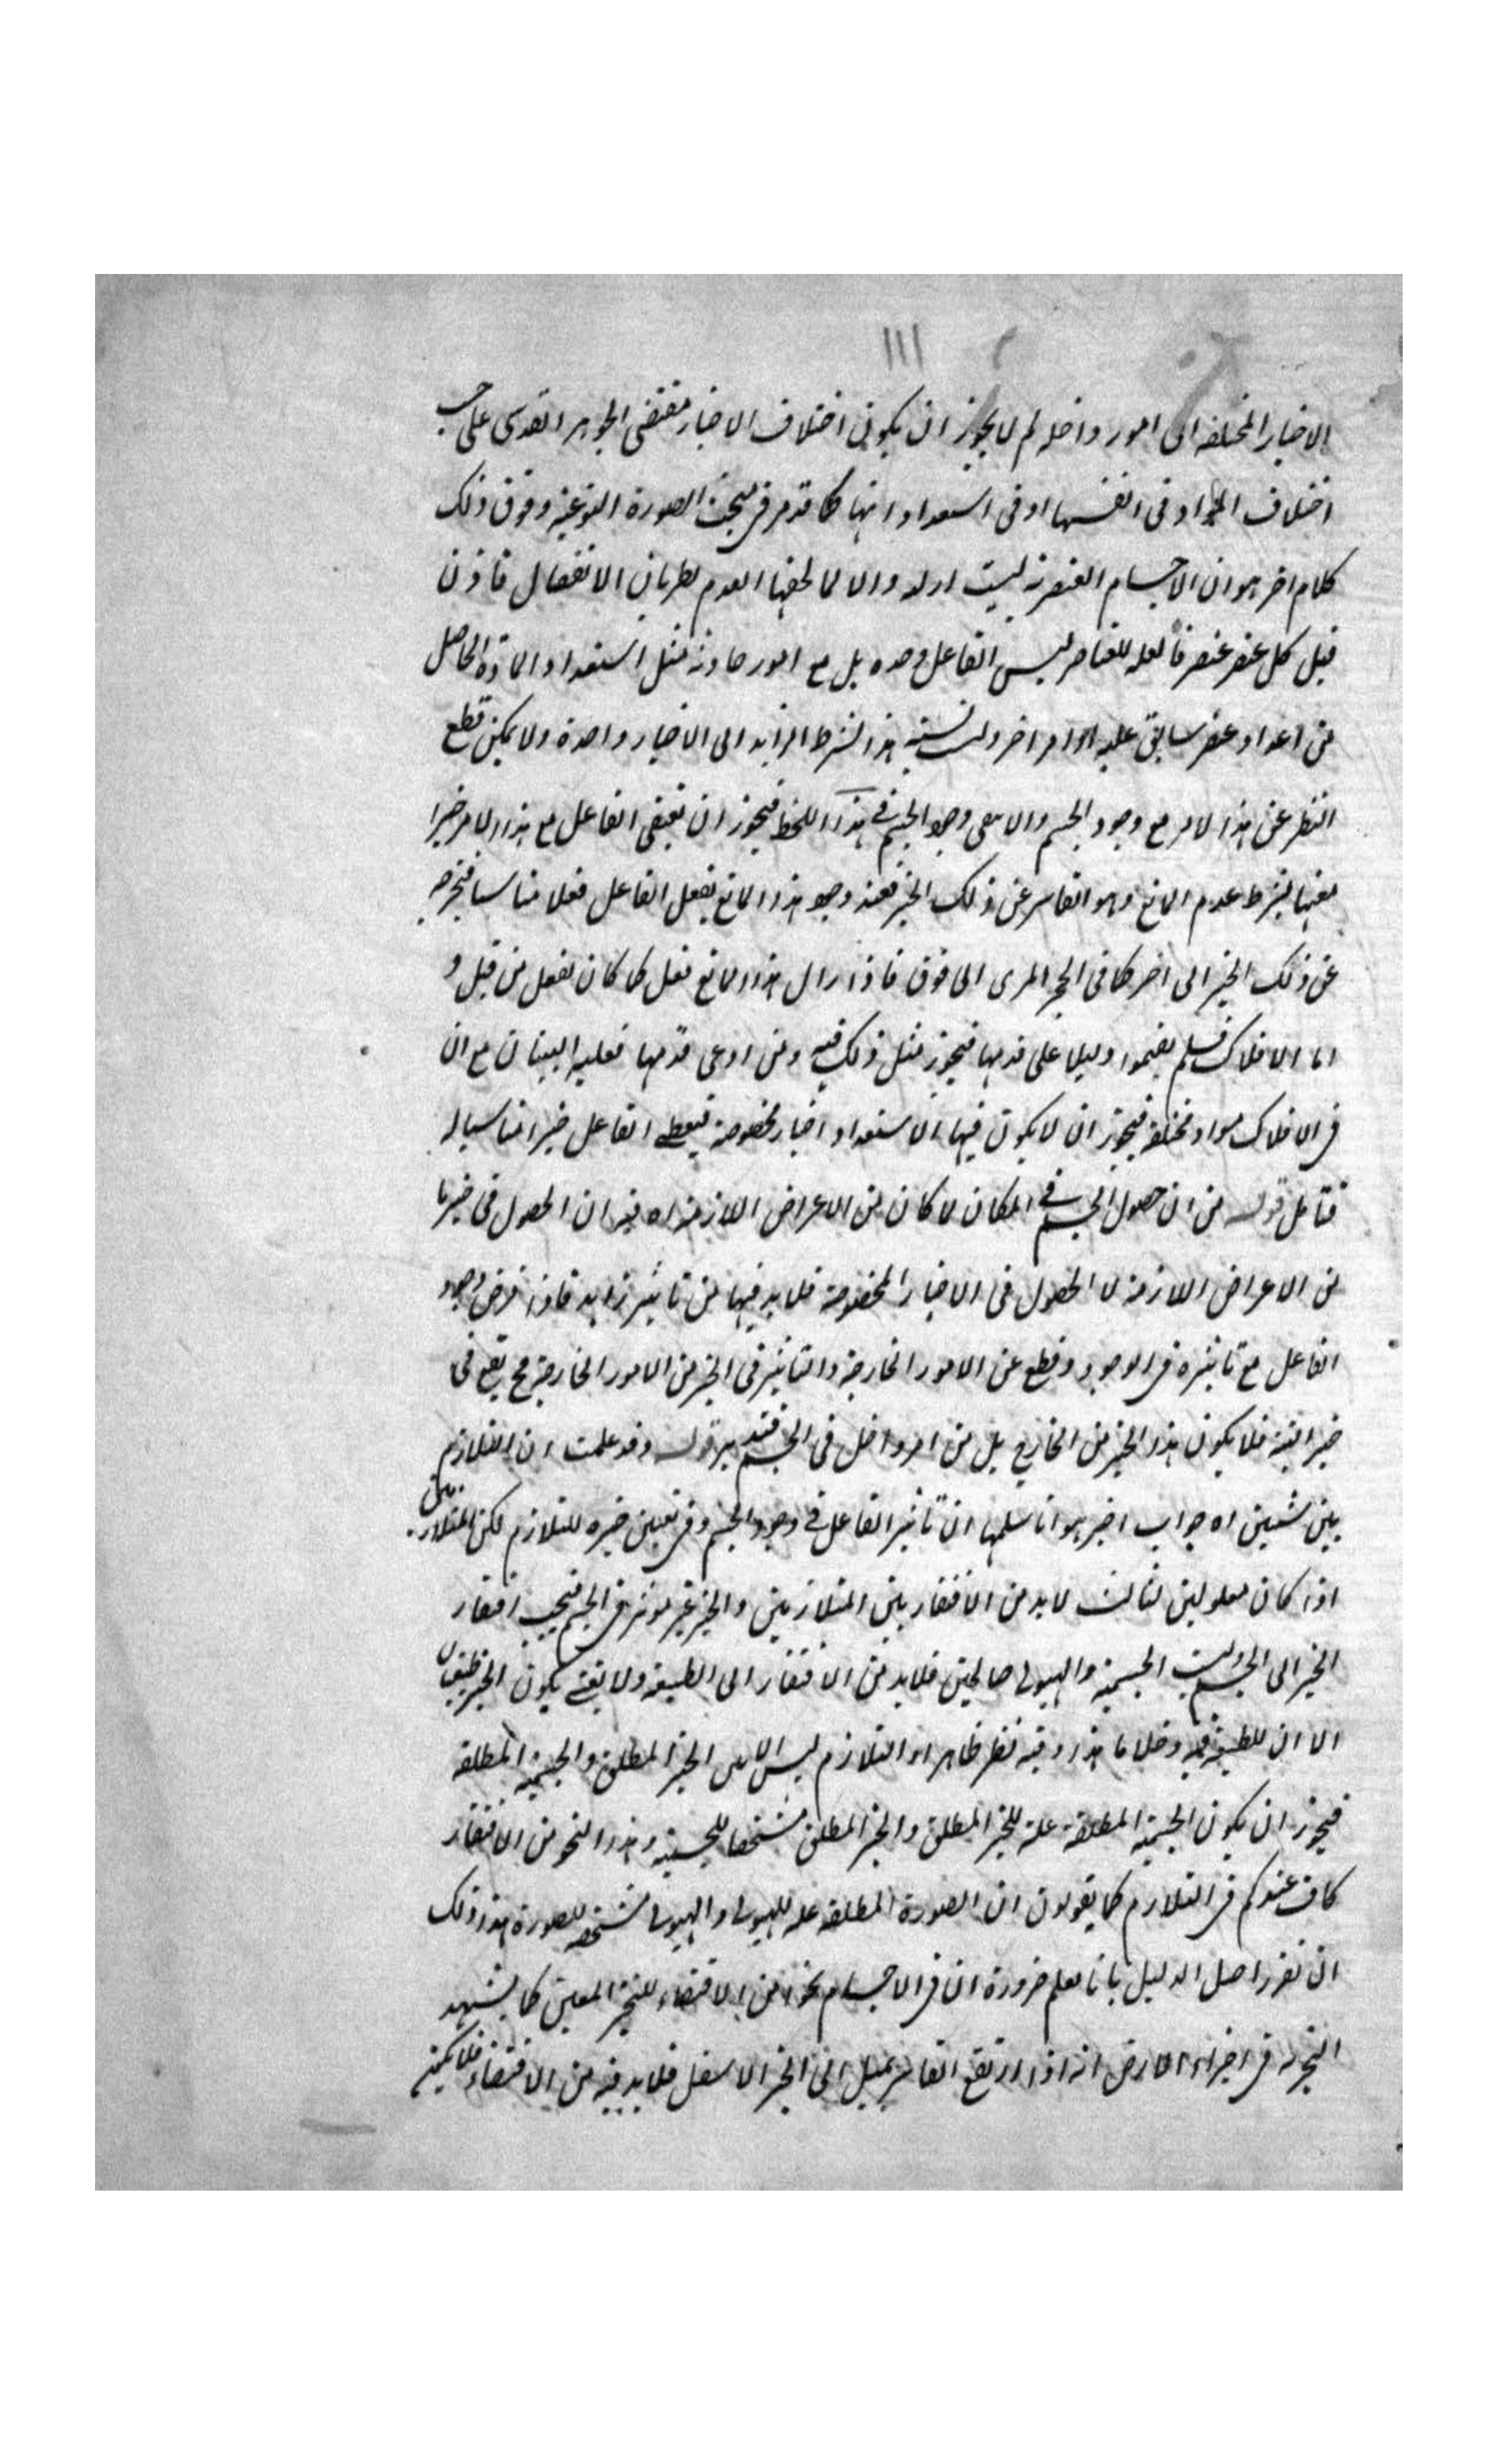 ١١١
الاحياز المختلفة الى امور داخلة لم لا يجوز ان يكون اختلاف الاحياز مقتضى الجوهر القدسى على حسب
اختلاف المواد فى انفسها او فى استعداداتها كما قد مر فى مبحث الصورة النوعية وفوق ذلك
كلام اخر هو ان الاجسام العنصرية ليست ازلية والا لما لحقها العدم بطريان الانفصال فاذن
قبل كل عنصر عنصر فالعلة للعناصر ليس الفاعل وحده بل مع امور حادثة مثل استعداد المادة الحاصل
من اعداد عنصر سابق عليه او امر اخر وليست نسبة هذا الشرط الزايد الى الاحياز واحدة ولا يمكن قطع
النظر عن هذا الامر مع وجود الجسم والا لا يبقى وجود الجسم فى هذا اللحظ فيجوز ان يقتضى الفاعل مع هذا الامر حيزا
معينا بشرط عدم المانع وهو القاسر عن ذلك الحيز فعند وجود هذا المانع يفعل الفاعل فعلا مناسبا فيخرجه
عن ذلك الحيز الى اخر كما فى الحجر المرمى الى فوق فاذا زال هذا المانع فعل كما كان يفعل من قبل و
اما الافلاك فلم يقيموا دليلا على قدمها فيجوز مثل ذلك فيه ومن ادعى قدمها فعليه البيان مع ان
فى الافلاك مواد مختلفة فيجوز ان لا يكون فيها الا استعداد احياز مخصوصة فيعطى الفاعل حيزا مناسبا له
فتامل قوله من ان حصول الجسم فى المكان لما كان من الاعراض اللازمة اه فيه ان الحصول فى حيز ما
من الاعراض اللازمة لا الحصول فى الاحياز المخصوصة فلا بد فيها من تاثير زايد فاذا فرض وجود
الفاعل مع تاثيره فى الوجود وقطع عن الامور الخارجية والتاثير فى الحيز من الامور الخارجية فح يقع فى
حيز البتة فلا يكون هذا الحيز من الخارج بل من امر داخل فى الجسم فتدبر قوله وقد علمت ان التلازم
بين شيئين اه جواب اخر هو انا سلمنا ان تاثير الفاعل فى وجود الجسم وفى تعيين حيزه للتلازم لكن المتلازمين
اذا كان معلولين لثالث لا بد من الافتقار بين المتلازمين والحيز غير موثر فى الجسم فيجب افتقار
الحيز الى الجسم وليست الجسمية والهيولى صالحين فلا بد من الافتقار الى الطبيعة ولا نعنى بكون الحيز طبيعيا
الا ان للطبيعة فيه دخلا ما هذا وفيه نظر ظاهر اذ التلازم ليس الا بين الحيز المطلق والجسمية المطلقة
فيجوز ان يكون الجسمية المطلقة علة للحيز المطلق والحيز المطلق مشخصا للجسمية وهذا النحو من الافتقار
كاف عندكم فى التلازم كما يقولون ان الصورة المطلقة علة للهيولى والهيولى مشخصة للصورة هذا ولك
ان تقرر اصل الدليل بانا نعلم ضرورة ان فى الاجسام نحوا من الاقتضاء للحيز المعين كما يشهد
التجربة فى اجزاء الارض انه اذا ارتفع القاسر يميل الى الحيز الاسفل فلا بد فيه من الاقتضاء فلا يكفيه